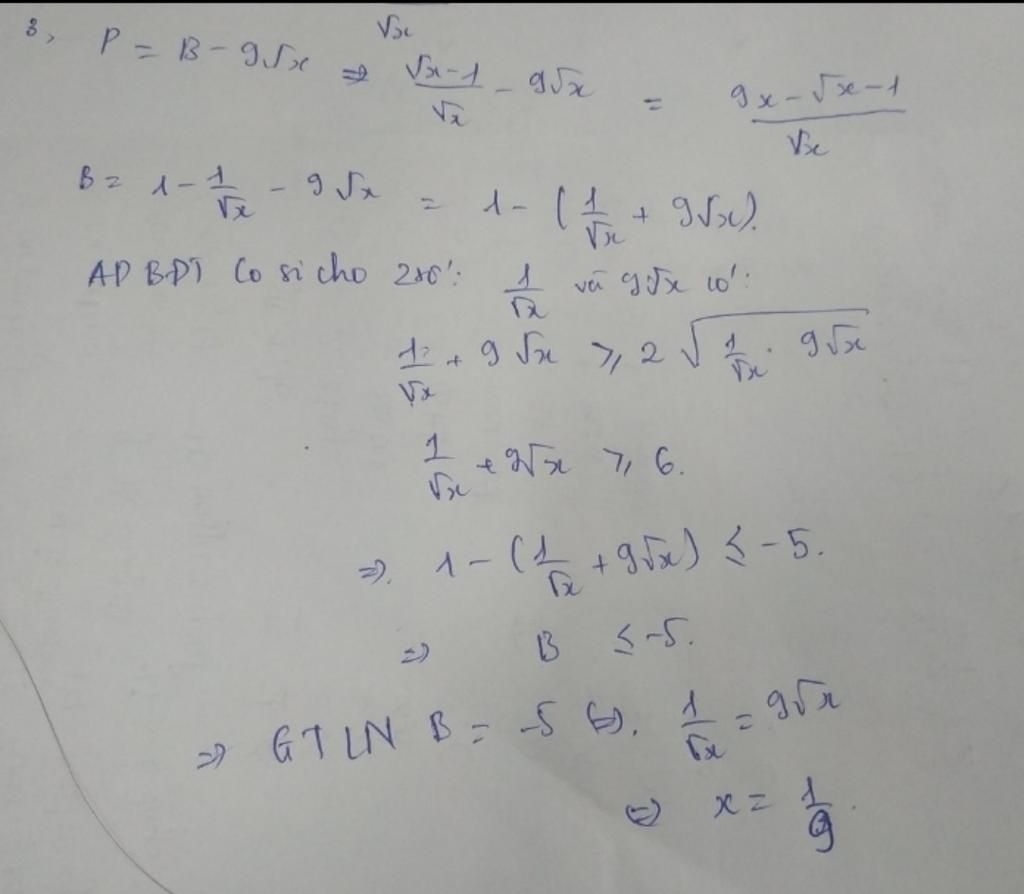 3, P = B - 9√x ⇒ (√x-1)/√x - 9√x = (9x-√x-1)/√x
√x
B = 1 - 1/√x - 9√x = 1 - (1/√x + 9√x).
AD BĐT Cosi cho 2 số: 1/√x và 9√x có:
1/√x + 9√x ≥ 2√(1/√x . 9√x)
1/√x + 9√x ≥ 6.
⇒ 1 - (1/√x + 9√x) ≤ -5.
⇒ B ≤ -5.
⇒ GTLN B = -5 ⇔. 1/√x = 9√x
⇔ x = 1/9.